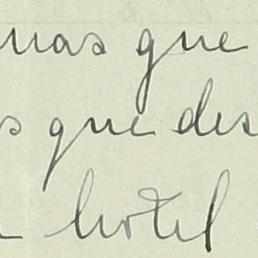 uas que
s que des
hotel